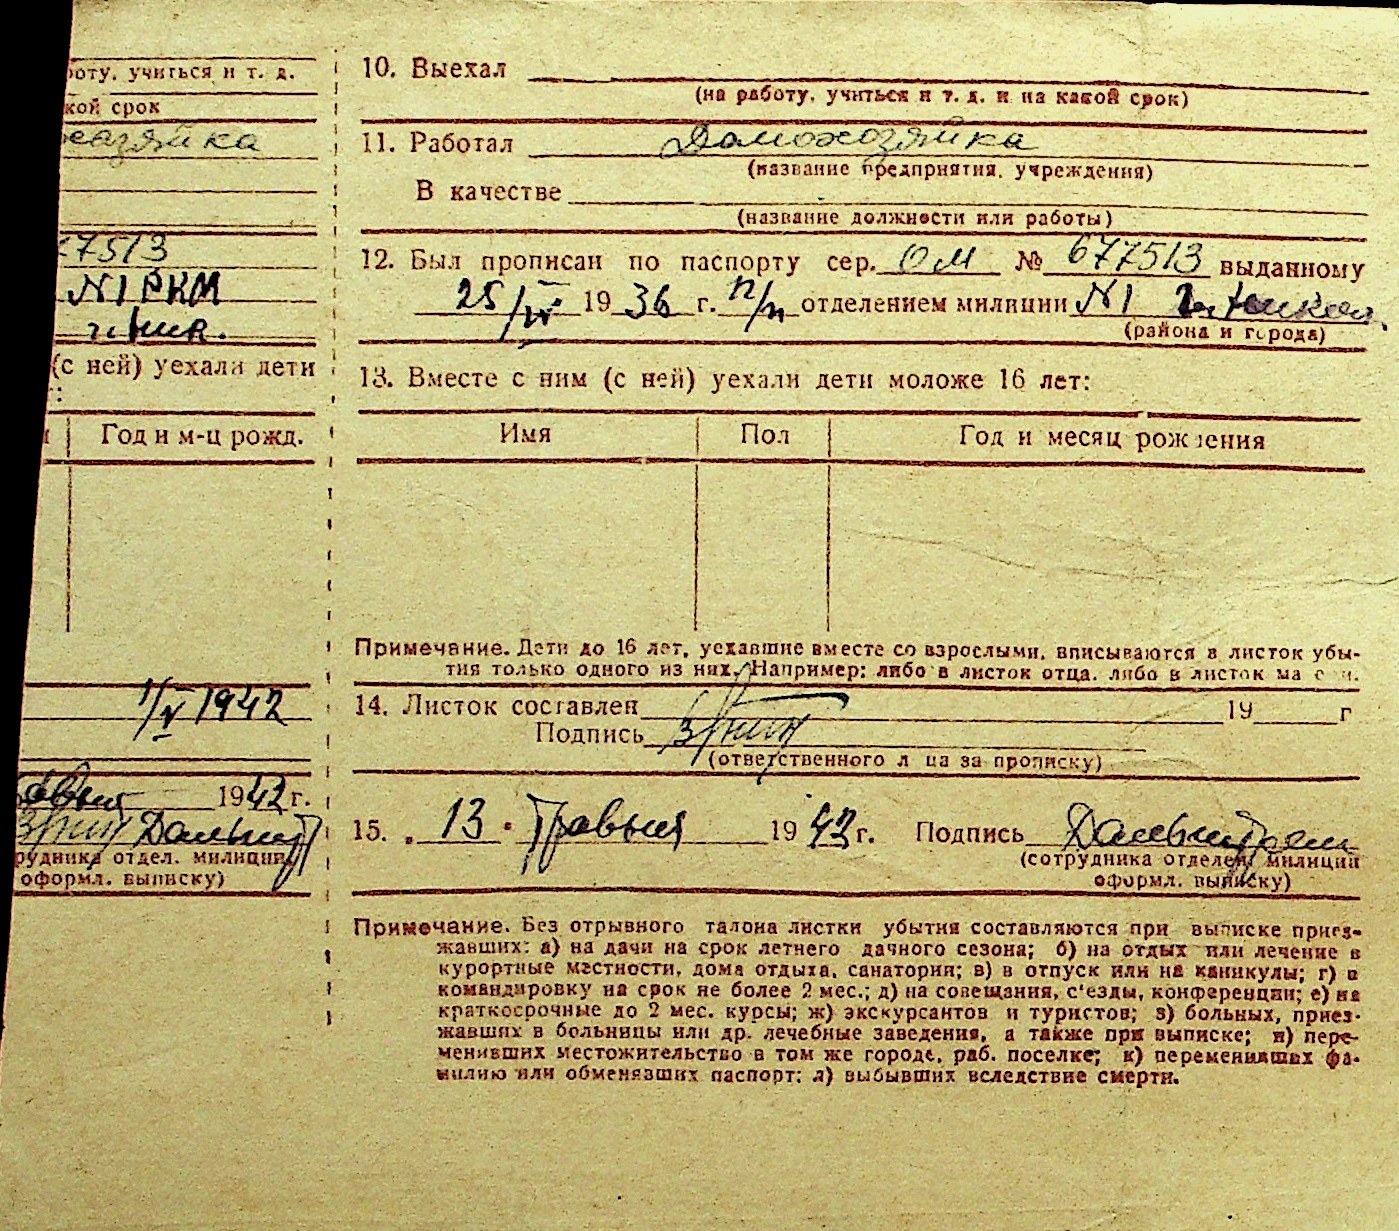 оту, учиться и т. д.
кой срок
хазяйка
77513
N1 РКМ
(с ней) уехали дети
Год и м-ц рожд.
1/V 1942
1942 г.
рудника отдел. милиции
оформл. выписку)
10. Выехал
(на работу, учиться и т. д. и на какой срок)
11. Работал Домохозяйка
(название предприятия, учреждения)
В качестве
(название должности или работы)
12. Был прописан по паспорту сер. ОМ № 677513 выданному
25/IV 1936 г. п/п отделением милиции N1
(района и города)
13. Вместе с ним (с ней) уехали дети моложе 16 лет:
Имя Пол Год и месяц рождения
Примечание. Дети до 16 лет, уехавшие вместе со взрослыми, вписываются в листок убы-
тия только одного из них. Например: либо в листок отца, либо в листок ма
14. Листок составлен 19 г
Подпись
(ответственного л ца за прописку)
15. „ 13 " Травня 1942 г. Подпись
(сотрудника отделен милиции
оформл. выписку)
Примечание. Без отрывного талона листки убытия составляются при выписке приез-
жавших: а) на дачи на срок летнего дачного сезона; б) на отдых или лечение в
курортные местности, дома отдыха, санатории; в) в отпуск или на каникулы; г) в
командировку на срок не более 2 мес.; д) на совещания, с'езды, конференции; е) на
краткосрочные до 2 мес. курсы; ж) экскурсантов и туристов; з) больных, приез-
жавших в больницы или др. лечебные заведения, а также при выписке; и) пере-
менивших местожительство в том же городе, раб. поселке; к) переменивших фа-
милию или обменявших паспорт; л) выбывших вследствие смерти.